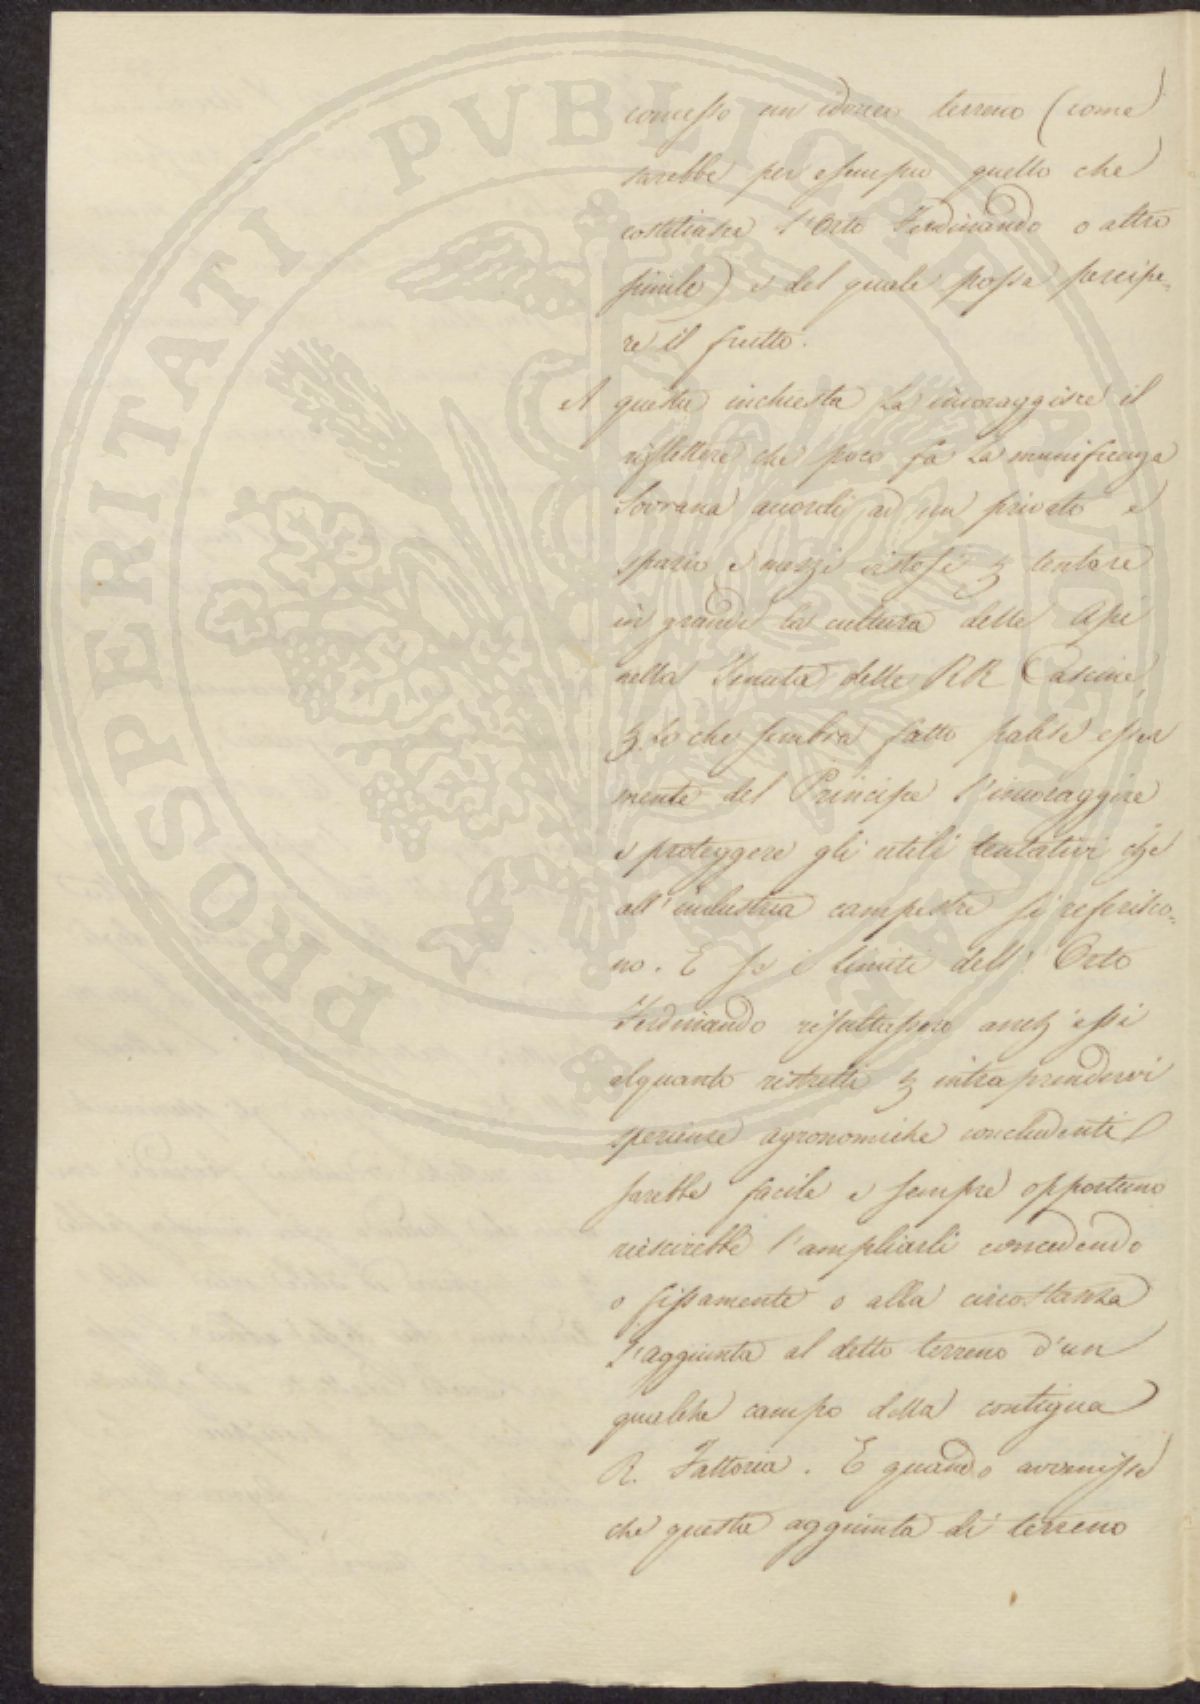 PROSPERITATI PVBLICAE AVGENDAE
concesso un idoneo terreno (come
sarebbe per esempio quello che
costituisce l'Orto Ferdinando o altro
simile) e del quale possa percipe-
re il frutto.
A questa inchiesta la incoraggisce il
riflettere che poco fà la munificenza
Sovrana accordi ad un privato e
spazio e mezzi vistosi p tentare
in grande la cultura delle Api
nella Tenuta delle RR Cascine,
p lo che sembra fatto palese esser
mente del Principe l'incoraggire
e proteggere gli utili tentativi che
all'industria campestre si riferisco-
no. E se i limiti dell'Orto
Ferdinando risultassero anch'essi
alquanto ristretti p intraprendervi
sperienze agronomiche concludenti
sarebbe facile e sempre opportuno
riescirebbe l'ampliarli concedendo
o fissamente o alla circostanza
l'aggiunta al detto terreno d'un
qualche campo della contigua
R. Fattoria. E quando avvenisse
che questa aggiunta di terreno